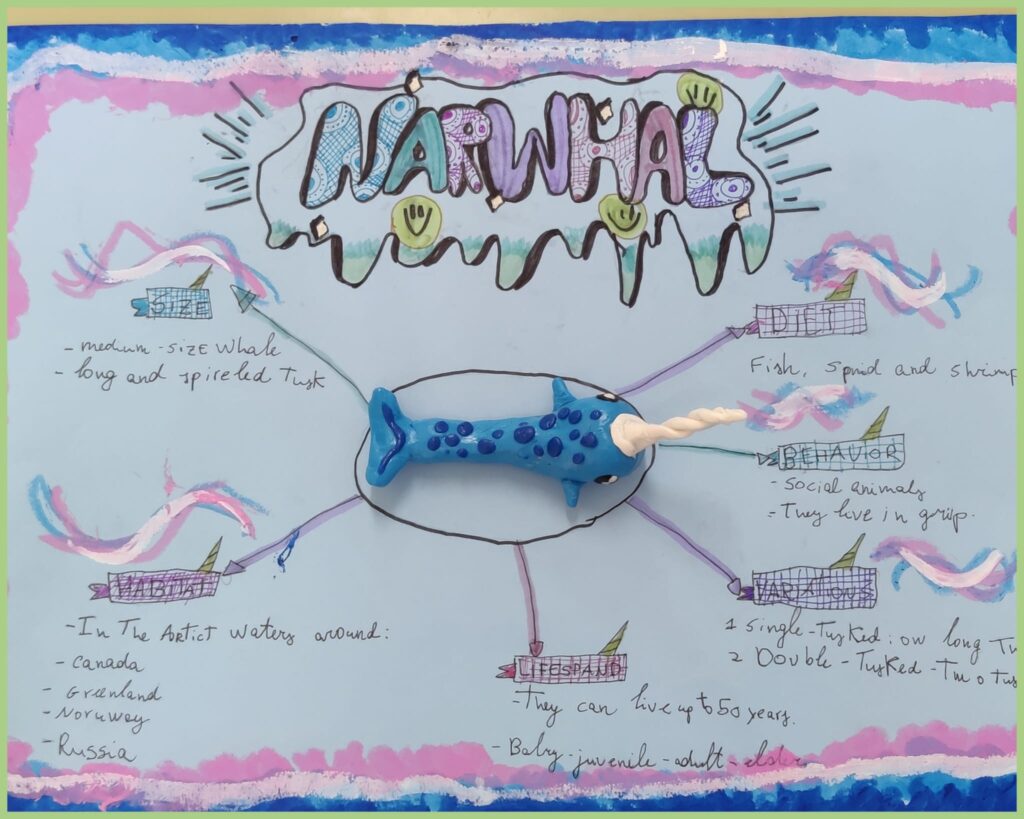 NARWHAL
SIZE
- medium-size whale
- long and spireled Tusk
DIET
Fish, squid and shrimp
BEHAVIOR
- Social animals
- They live in grop.
HABITAT
- In The Artict waters around:
- Canada
- Greenland
- Noruway
- Russia
LIFESPAND
- They can live up to 50 years.
- Balry-juvenile-adult-elder
VARIATIOUS
1 Single-Tusked: ow long Tu
2 Double-Tusked-Tmo Tus